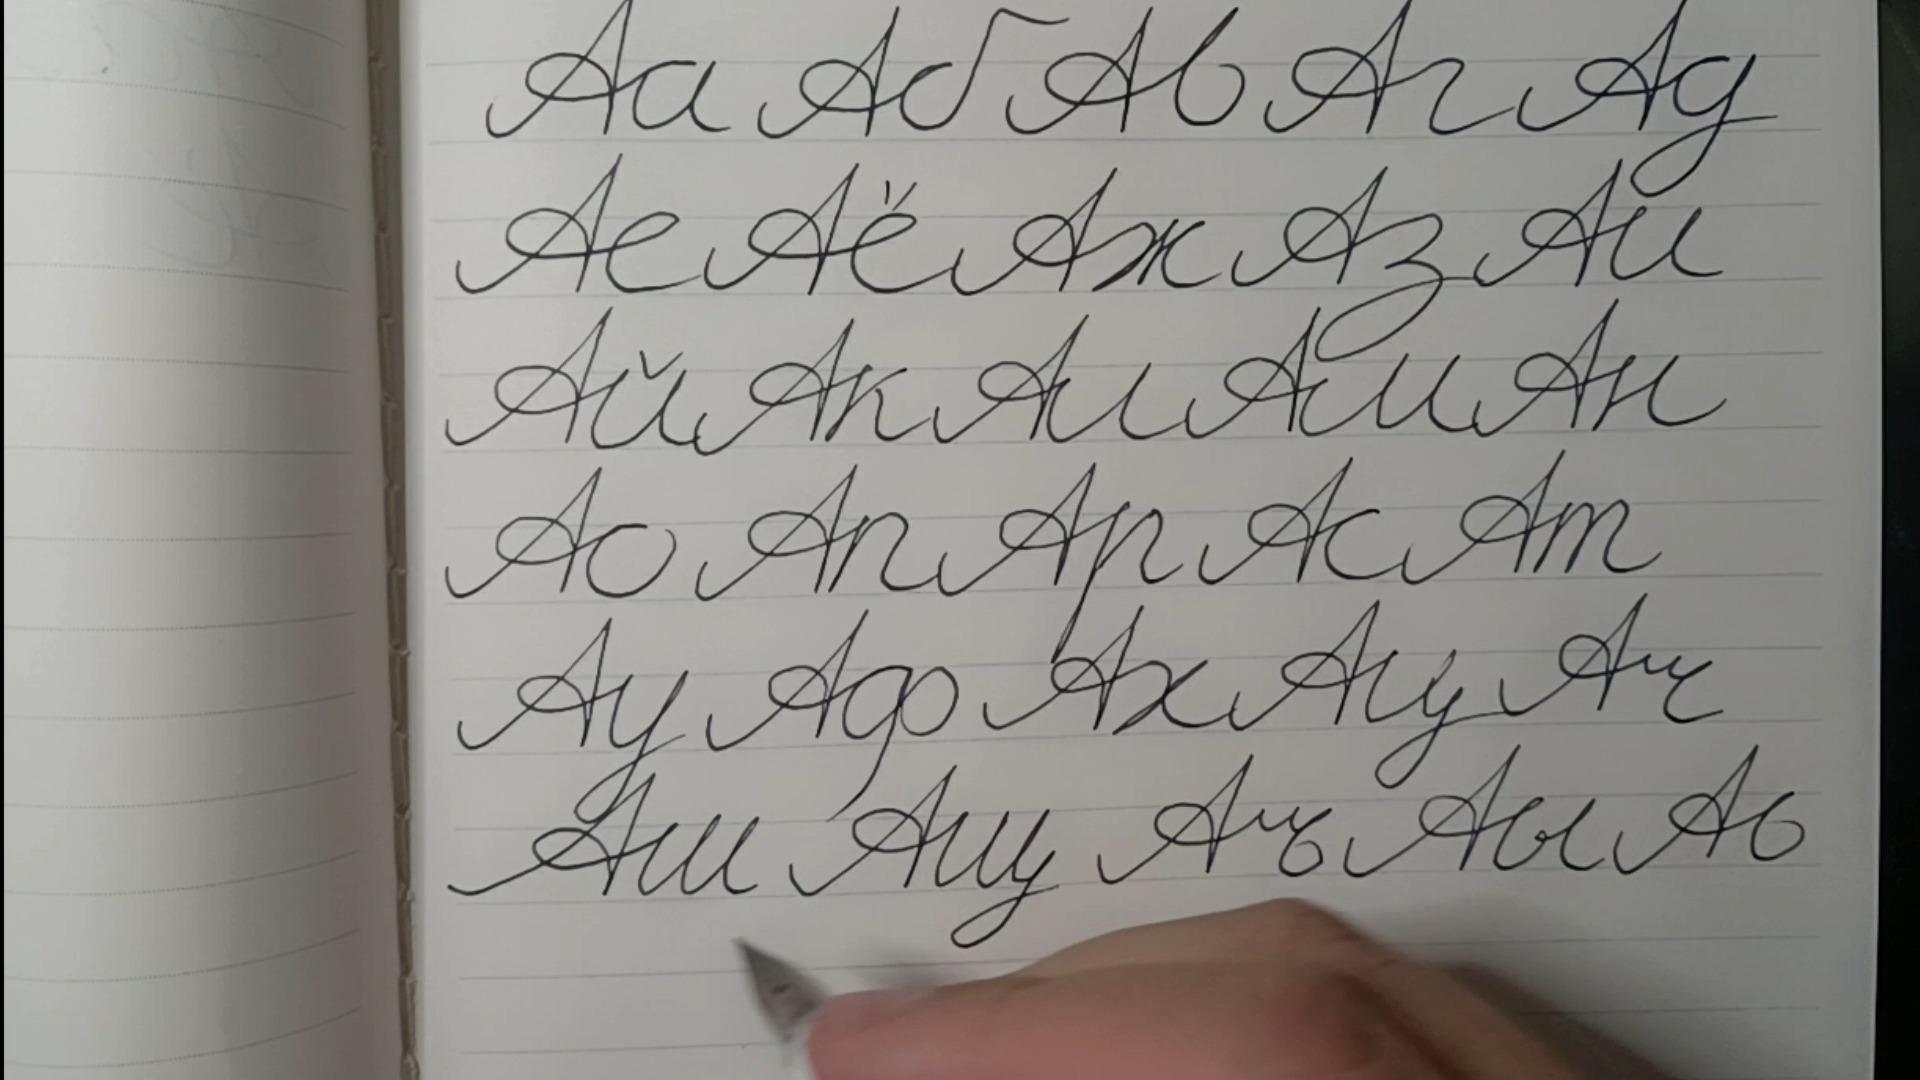 Аа Аб Ав Аг Ад
Ае Аё Аж Аз Аи
Ай Ак Ал Ам Ан
Ао Ап Ар Ас Ат
Ау Аф Ах Ац Ач
Аш Ащ Аъ Аы Аь